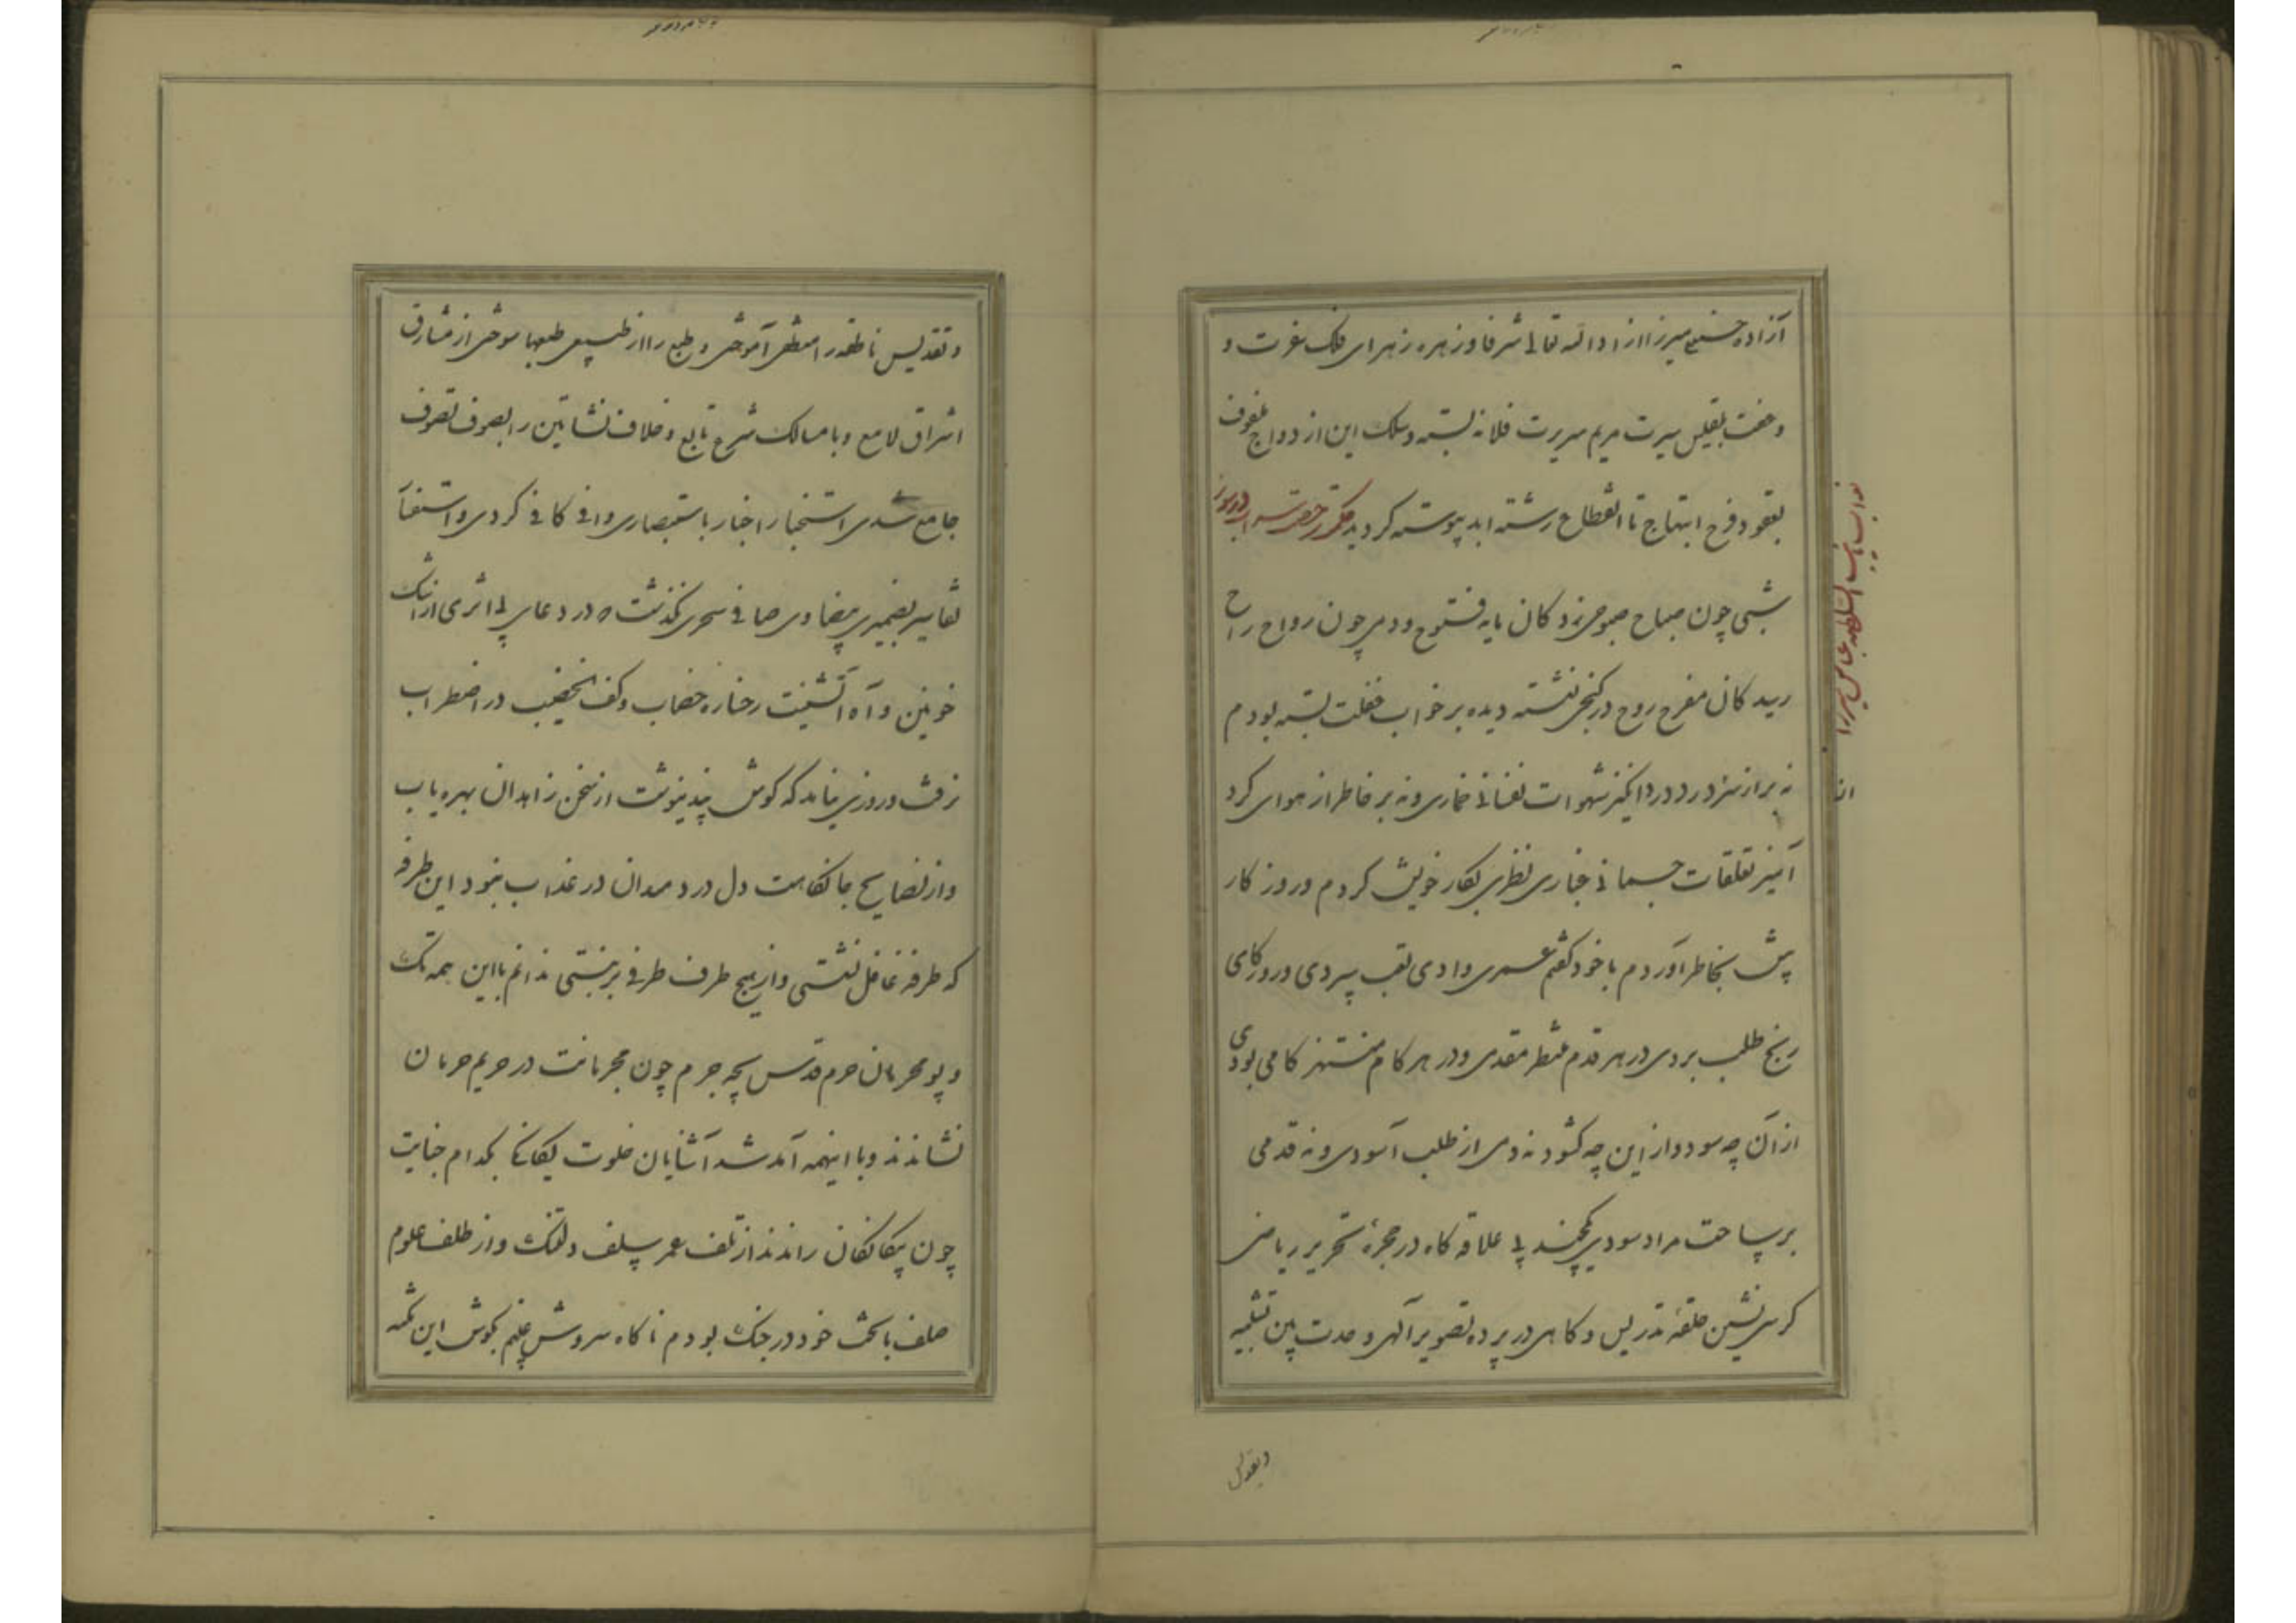 آزاده حسنعلی میرزا زاد الله تعالی شرفا و زهره زهرای فلک عزت و
و عفت بلقیس سیرت مریم سریرت فلانه بسته و سلک این ازدواج ملفوف
بعقود فرح ابتهاج تا انقطاع رشته ابد پیوسته کردید
نواب نایب السلطنه عباس میرزا
شبی چون صباح صبوحی زدکان مایه فتوح و دمی چون رواح راح
رسیدکان مفرح روح در کنجی نشسته دیده بر خواب غفلت بسته بودم
نه بر از درد درد انکیز شهوات نفسانی خماری و نه بر خاطر از هوای کرد
آمیز تعلقات جسمانی غباری نظری بکار خویش کردم و روزکار
پیش بخاطر آوردم با خود کفتم عمری وادی تعب سپردی و روزکاری
رنج طلب بردی در هر قدم منتظر مقدمی و در هر کام منتهز کامی بودی
از آن چه سود و از این چه کشود نه دمی از طلب آسودی و نه قدمی
بر ساحت مراد سودی کاه در حجره تحریر ریاضی
کرسی نشین حلقه تدریس و کاهی در پرده تصویر آلهی وحدت بین تثلیه
و تقدیس
و تقدیس ناطقه را منطقی آموختی و طبع را از طبیعی طعمها سوختی از مشارق
اشراق لامع و با مسالک شرع تابع و خلاف نشاتین را بصوف تصوف
جامع شدی استخبار اخبار باستبصاری وافی کافی کردی و استفتا
تفاسیر بضمیری بیضاوی صافی سحری نکذشت که در دعای بی اثری از اشک
خونین و آه آتشینت رخساره خضاب و کف الخضیب در اضطراب
نرفت و روزی نماند که کوش پند نیوشت از سخن زاهدان بهره یاب
و از نصایح جانکاهت دل دردمندان در عذاب نبود این طرفه
که طرفه غافل ننشستی و از هیچ طرف طرفی بر نبستی ندانم با این همه تک
و پو محرمان حرم قدس بچه جرم چون مجرمانت در حریم حرمان
نشاندند و با اینهمه آمد شد آشنایان خلوت یکانکی بکدام جنایت
چون بیکانکان راندند از تلف عمر سلف دلتنک و از طلف علوم
خلف با بخت خود در جنک بودم ناکاه سروش غیبم بکوش این نکته